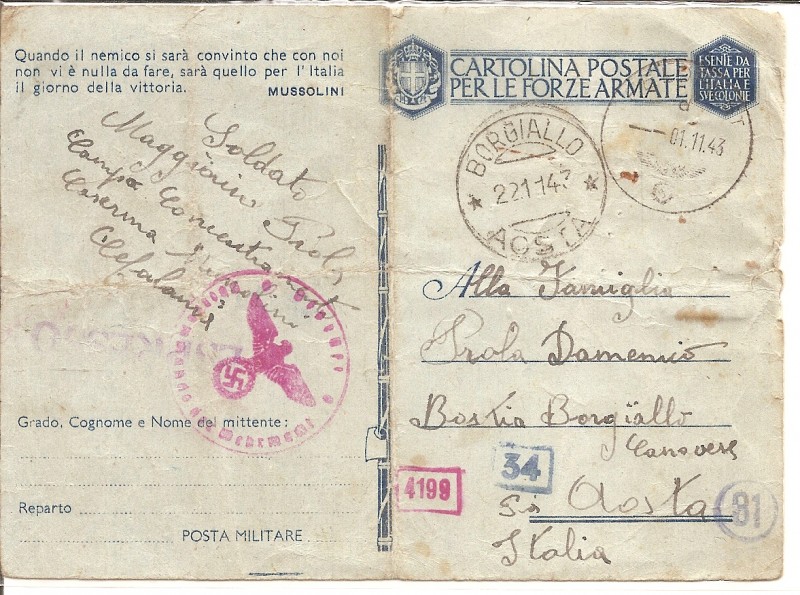 Quando il nemico si sarà convinto che con noi
non vi è nulla da fare, sarà quello per l'Italia
il giorno della vittoria.
MUSSOLINI
Soldato
Maggiorino Prola
Campo Concentramento
Caserma Mussolini
Cefalonia
Grado, Cognome e Nome del mittente:
Reparto
POSTA MILITARE
CARTOLINA POSTALE
PER LE FORZE ARMATE
ESENTE DA
TASSA PER
L'ITALIA E
SUE COLONIE
01.11.43
BORGIALLO
22 11 43
AOSTA
Alla Famiglia
Prola Domenico
Bostia Borgiallo
Canavese
4199
34
Aosta
81
Italia
Wehrmacht